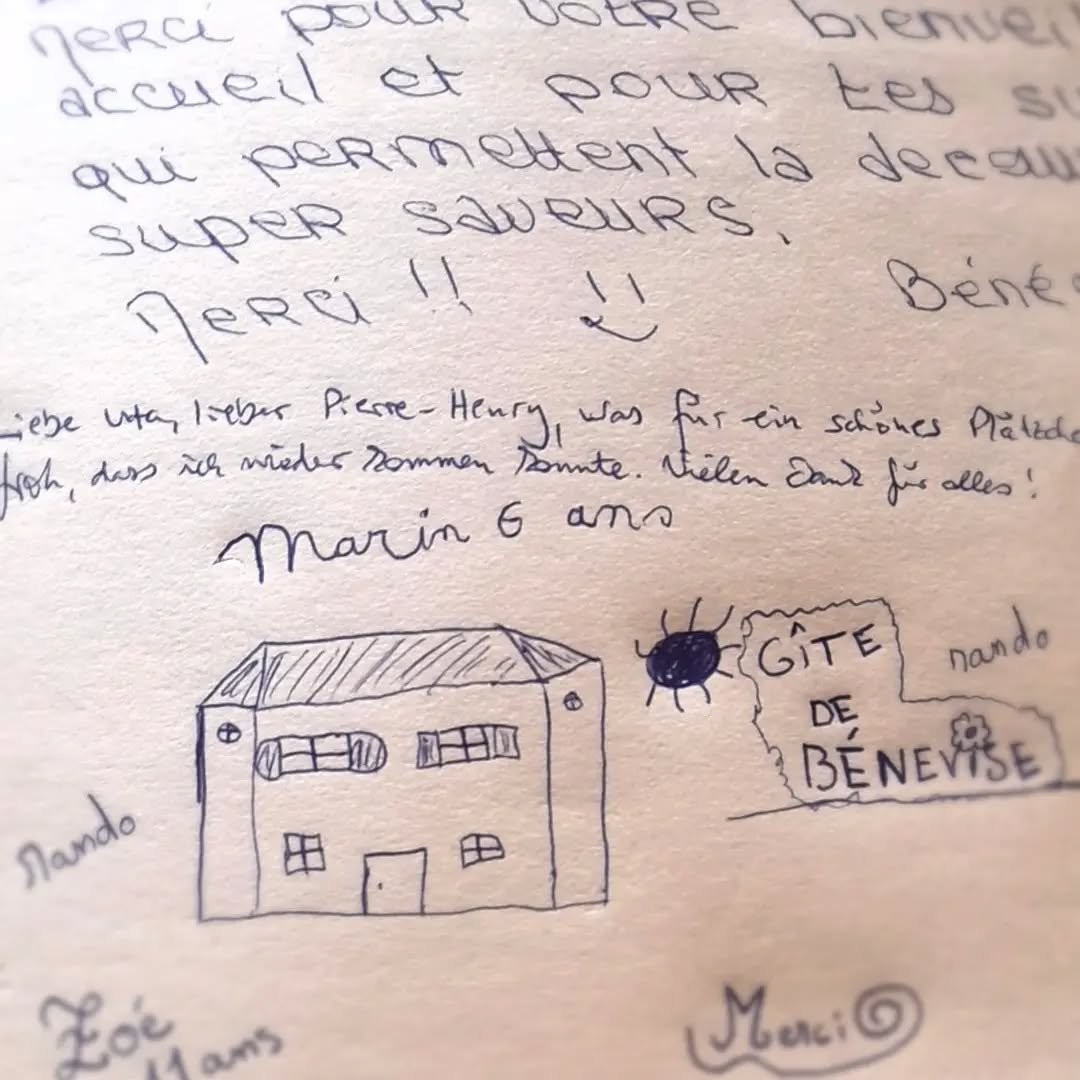 Merci pour votre bienveil
accueil et pour tes su
qui permettent la decou
super saveurs.
Merci !! Béné
Liebe Uta, lieber Pierre-Henry, was für ein schönes Plätzche
froh, dass ich wieder kommen konnte. Vielen Dank für alles!
Marin 6 ans
GÎTE
DE
BÉNEVISE
nando
nando
Zoé
11 ans
Merci